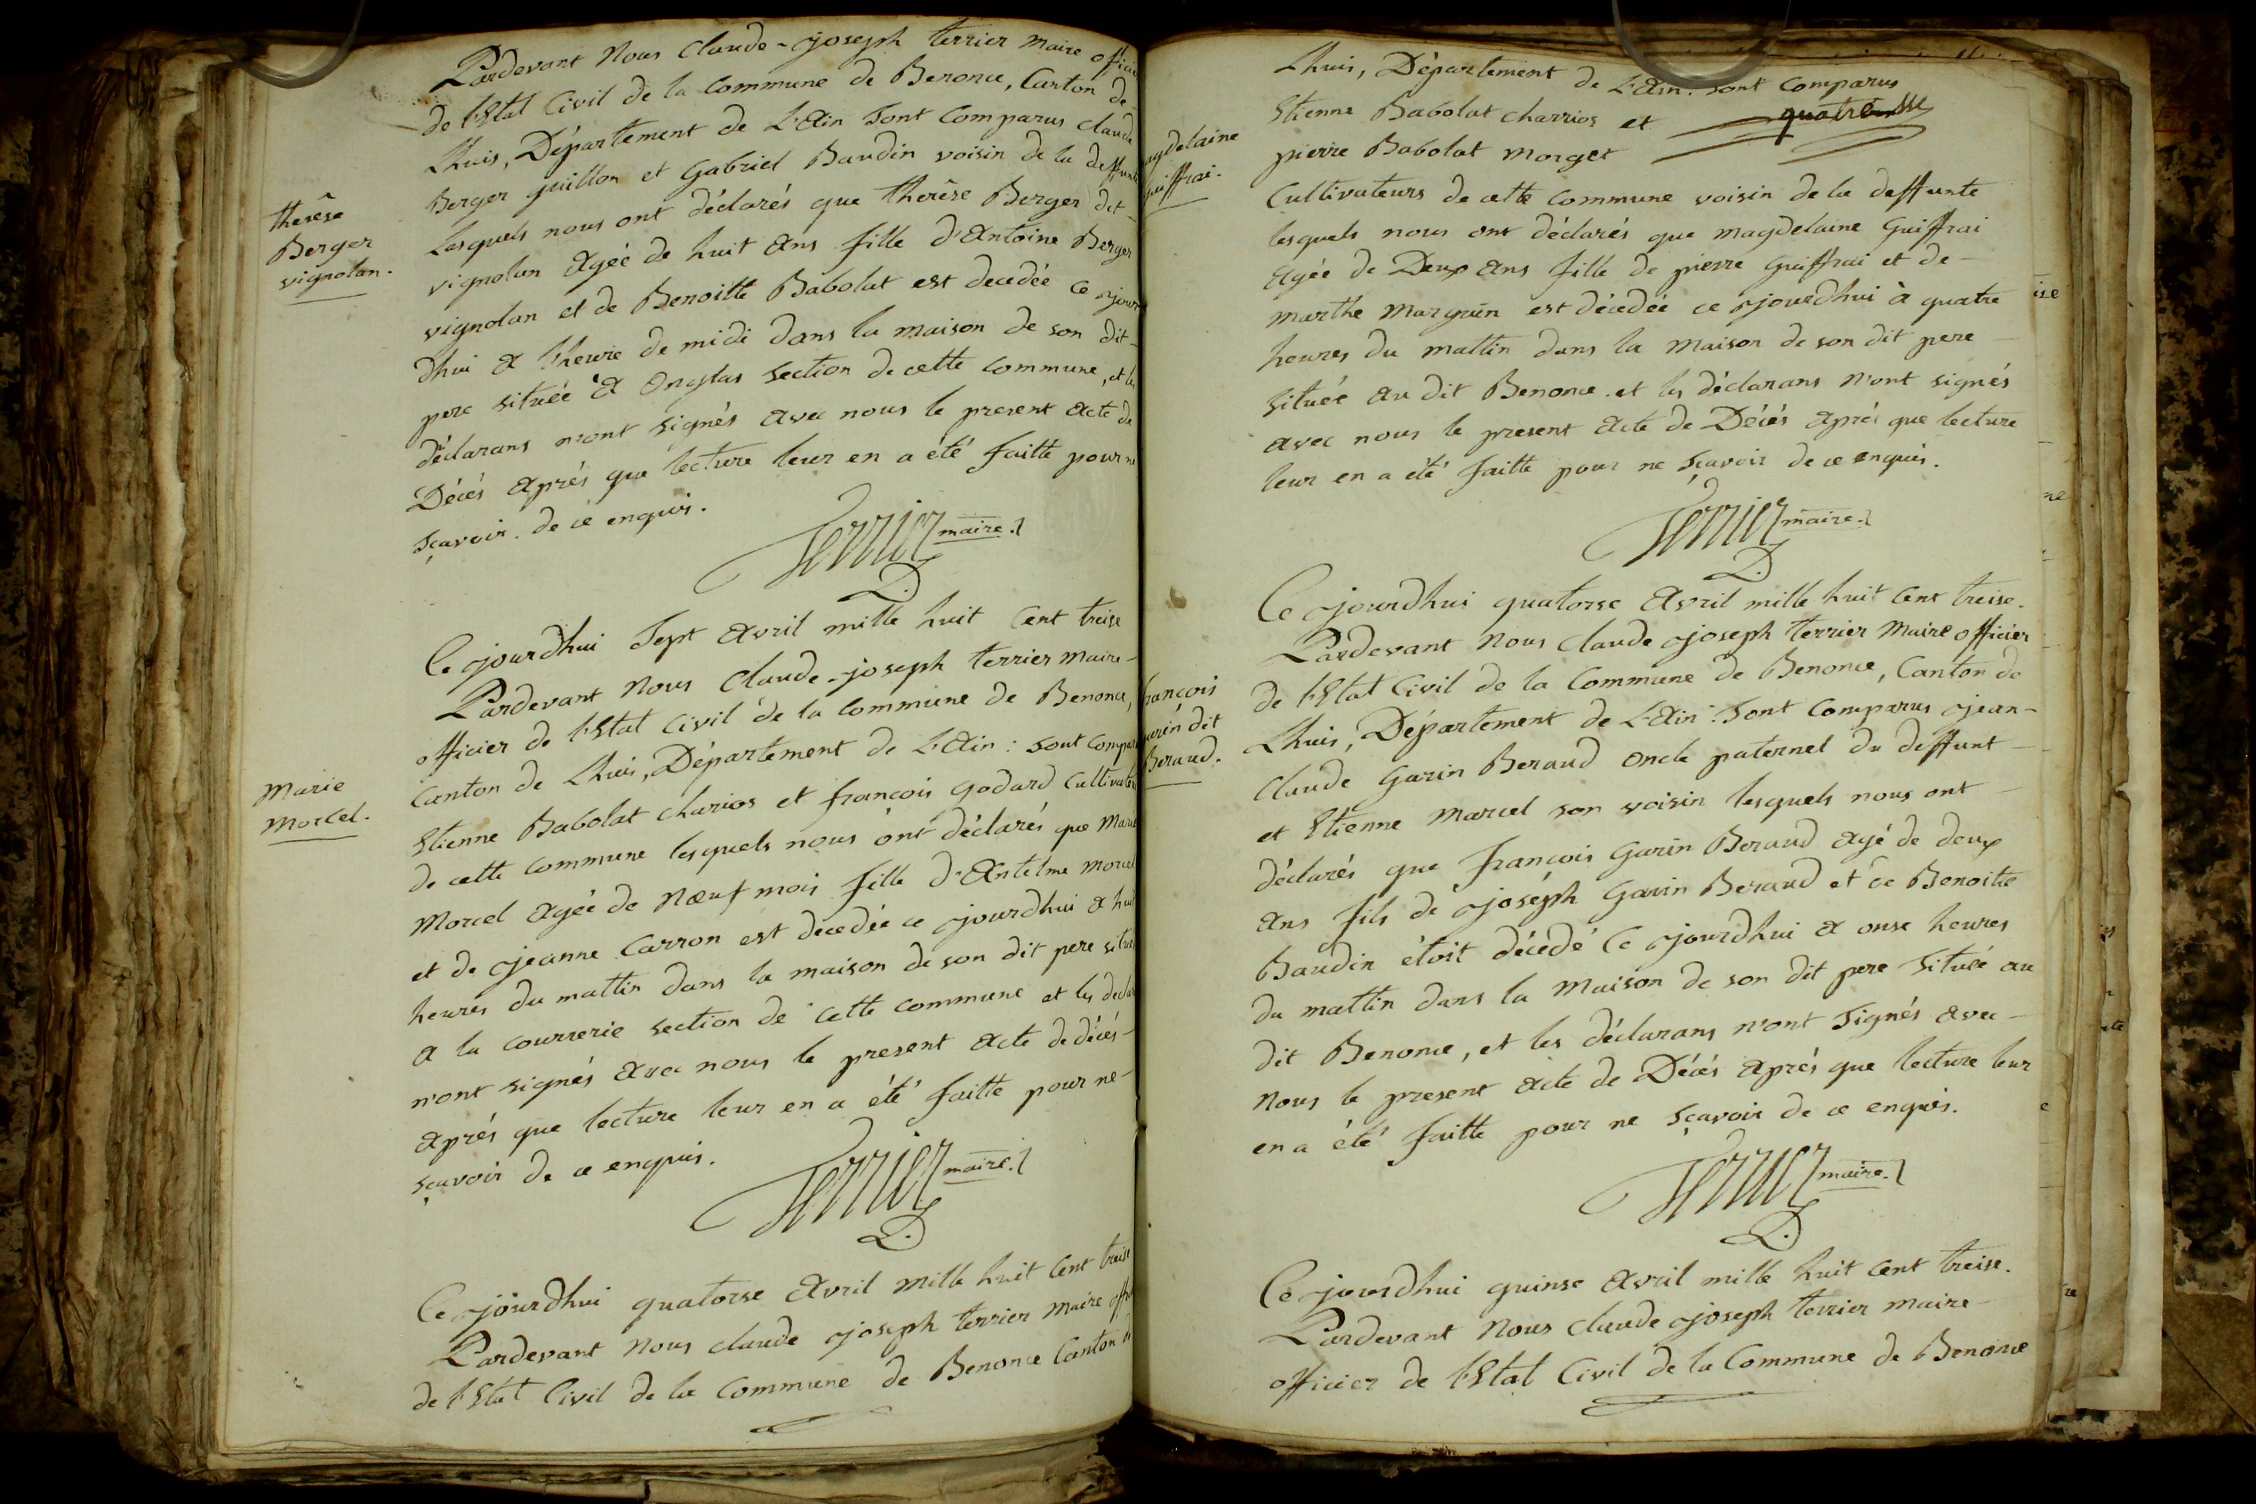 Pardevant Nous Claude-joseph terrier Maire officier
de l'Etat Civil de la Commune de Benonce, Canton de
Lhuis, Département de L'Ain sont Comparus claude
Berger guillon et Gabriel Baudin voisin de la deffunte
therèse
Berger
vignolan.
lesquels nous ont déclarés que therèse Berger dit
vignolan agéé de huit ans fille d'Antoine Berger
vignolan et de Benoitte Babolat est decedée ce jour
dhui a l'heure de midi dans la maison de son dit
pere située à Onglas section de cette commune, et les
déclarans n'ont signés avec nous le present acte de
Décés aprés que lecture leur en a été faitte pour ne
sçavoir de ce enquis.
Terrier maire.
D.
Ce jourdhui Sept avril mille huit Cent treise
Pardevant Nous Claude-joseph terrier Maire
officier de l'Etat Civil de la Commune de Benonce,
Canton de Lhuis, Département de L'Ain: sont Compar
Marie
Morcel.
Etienne Babolat charios et françois Godard Cultivate
de cette commune lesquels nous ont déclarés que Marie
Morcel agéé de Nœuf mois fille d'Antelme Morcel
et de jeanne Carron est decedée ce jourdhui a huit
heures du mattin dans la maison de son dit pere située
a la courrerie section de cette commune et les declar
n'ont signés avec nous le present acte de décés
aprés que lecture leur en a été faitte pour ne
sçavoir de ce enquis.
Terrier maire.
D.
Ce jourdhui quatorse Avril mille huit Cent treise
Pardevant Nous claude joseph terrier Maire offi
de l'Etat Civil de la Commune de Benonce Canton d
Lhuis, Département de L'Ain: sont Comparus
Etienne Babolat charrios et
pierre Babolat Morget
agdelaine
uiffrai.
Cultivateurs de cette commune voisin de la deffunte
lesquels nous ont déclarés que magdelaine Guiffrai
agéé de Deux ans fille de pierre Guiffrai et de
marthe Marguin est décedée ce jourdhui à quatre
heures du mattin dans la Maison de son dit pere
située au dit Benonce et les déclarans n'ont signés
avec nous le present acte de Décés aprés que lecture
leur en a été faitte pour ne sçavoir de ce enquis.
Terrier maire.
D.
Ce jourdhui quatorse Avril mille huit Cent treise.
Pardevant Nous Claude joseph terrier Maire officier
de l'Etat Civil de la Commune de Benonce, Canton de
Lhuis, Département de L'Ain: sont Comparus jean
rançois
arin dit
Beraud.
Claude Garin Beraud Oncle paternel du deffunt
et Etienne Marcel son voisin lesquels nous ont
déclarés que françois Garin Beraud agé de deux
ans fils de joséph Garin Beraud et de Benoitte
Baudin étoit décedé Ce jourdhui a onse heures
du mattin dans la Maison de son dit pere située au
dit Benonce, et les déclarans n'ont signés avec
nous le present acte de Décés aprés que lecture leur
en a été faitte pour ne sçavoir de ce enquis.
Terrier maire.
D.
Ce jourdhui quinse Avril mille huit cent treise.
Pardevant Nous Claude joseph terrier Maire
officier de l'Etat Civil de la Commune de Benonce